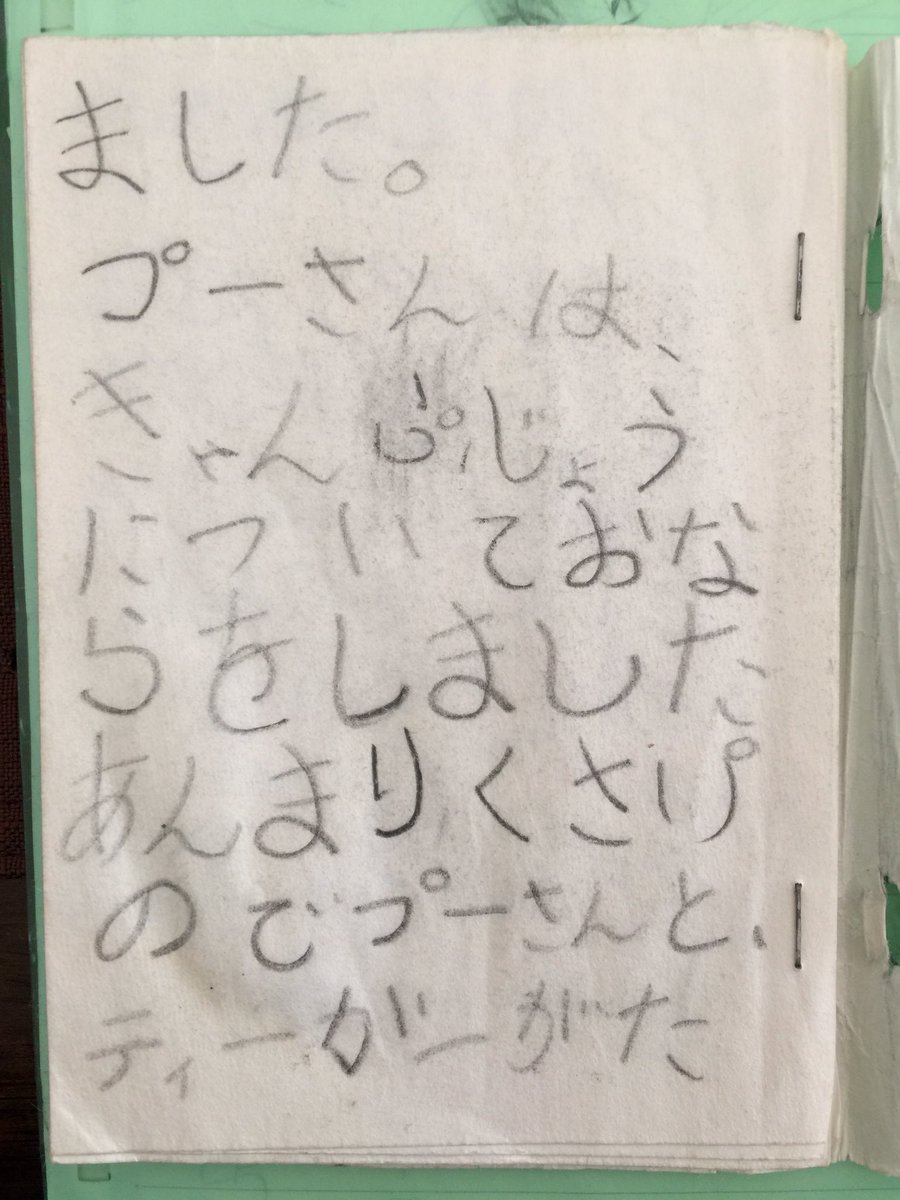 ました。
プーさんは、
きゃんぷじょう
についておな
らをしました
あんまりくさい
のでプーさんと、
ティーガーがた